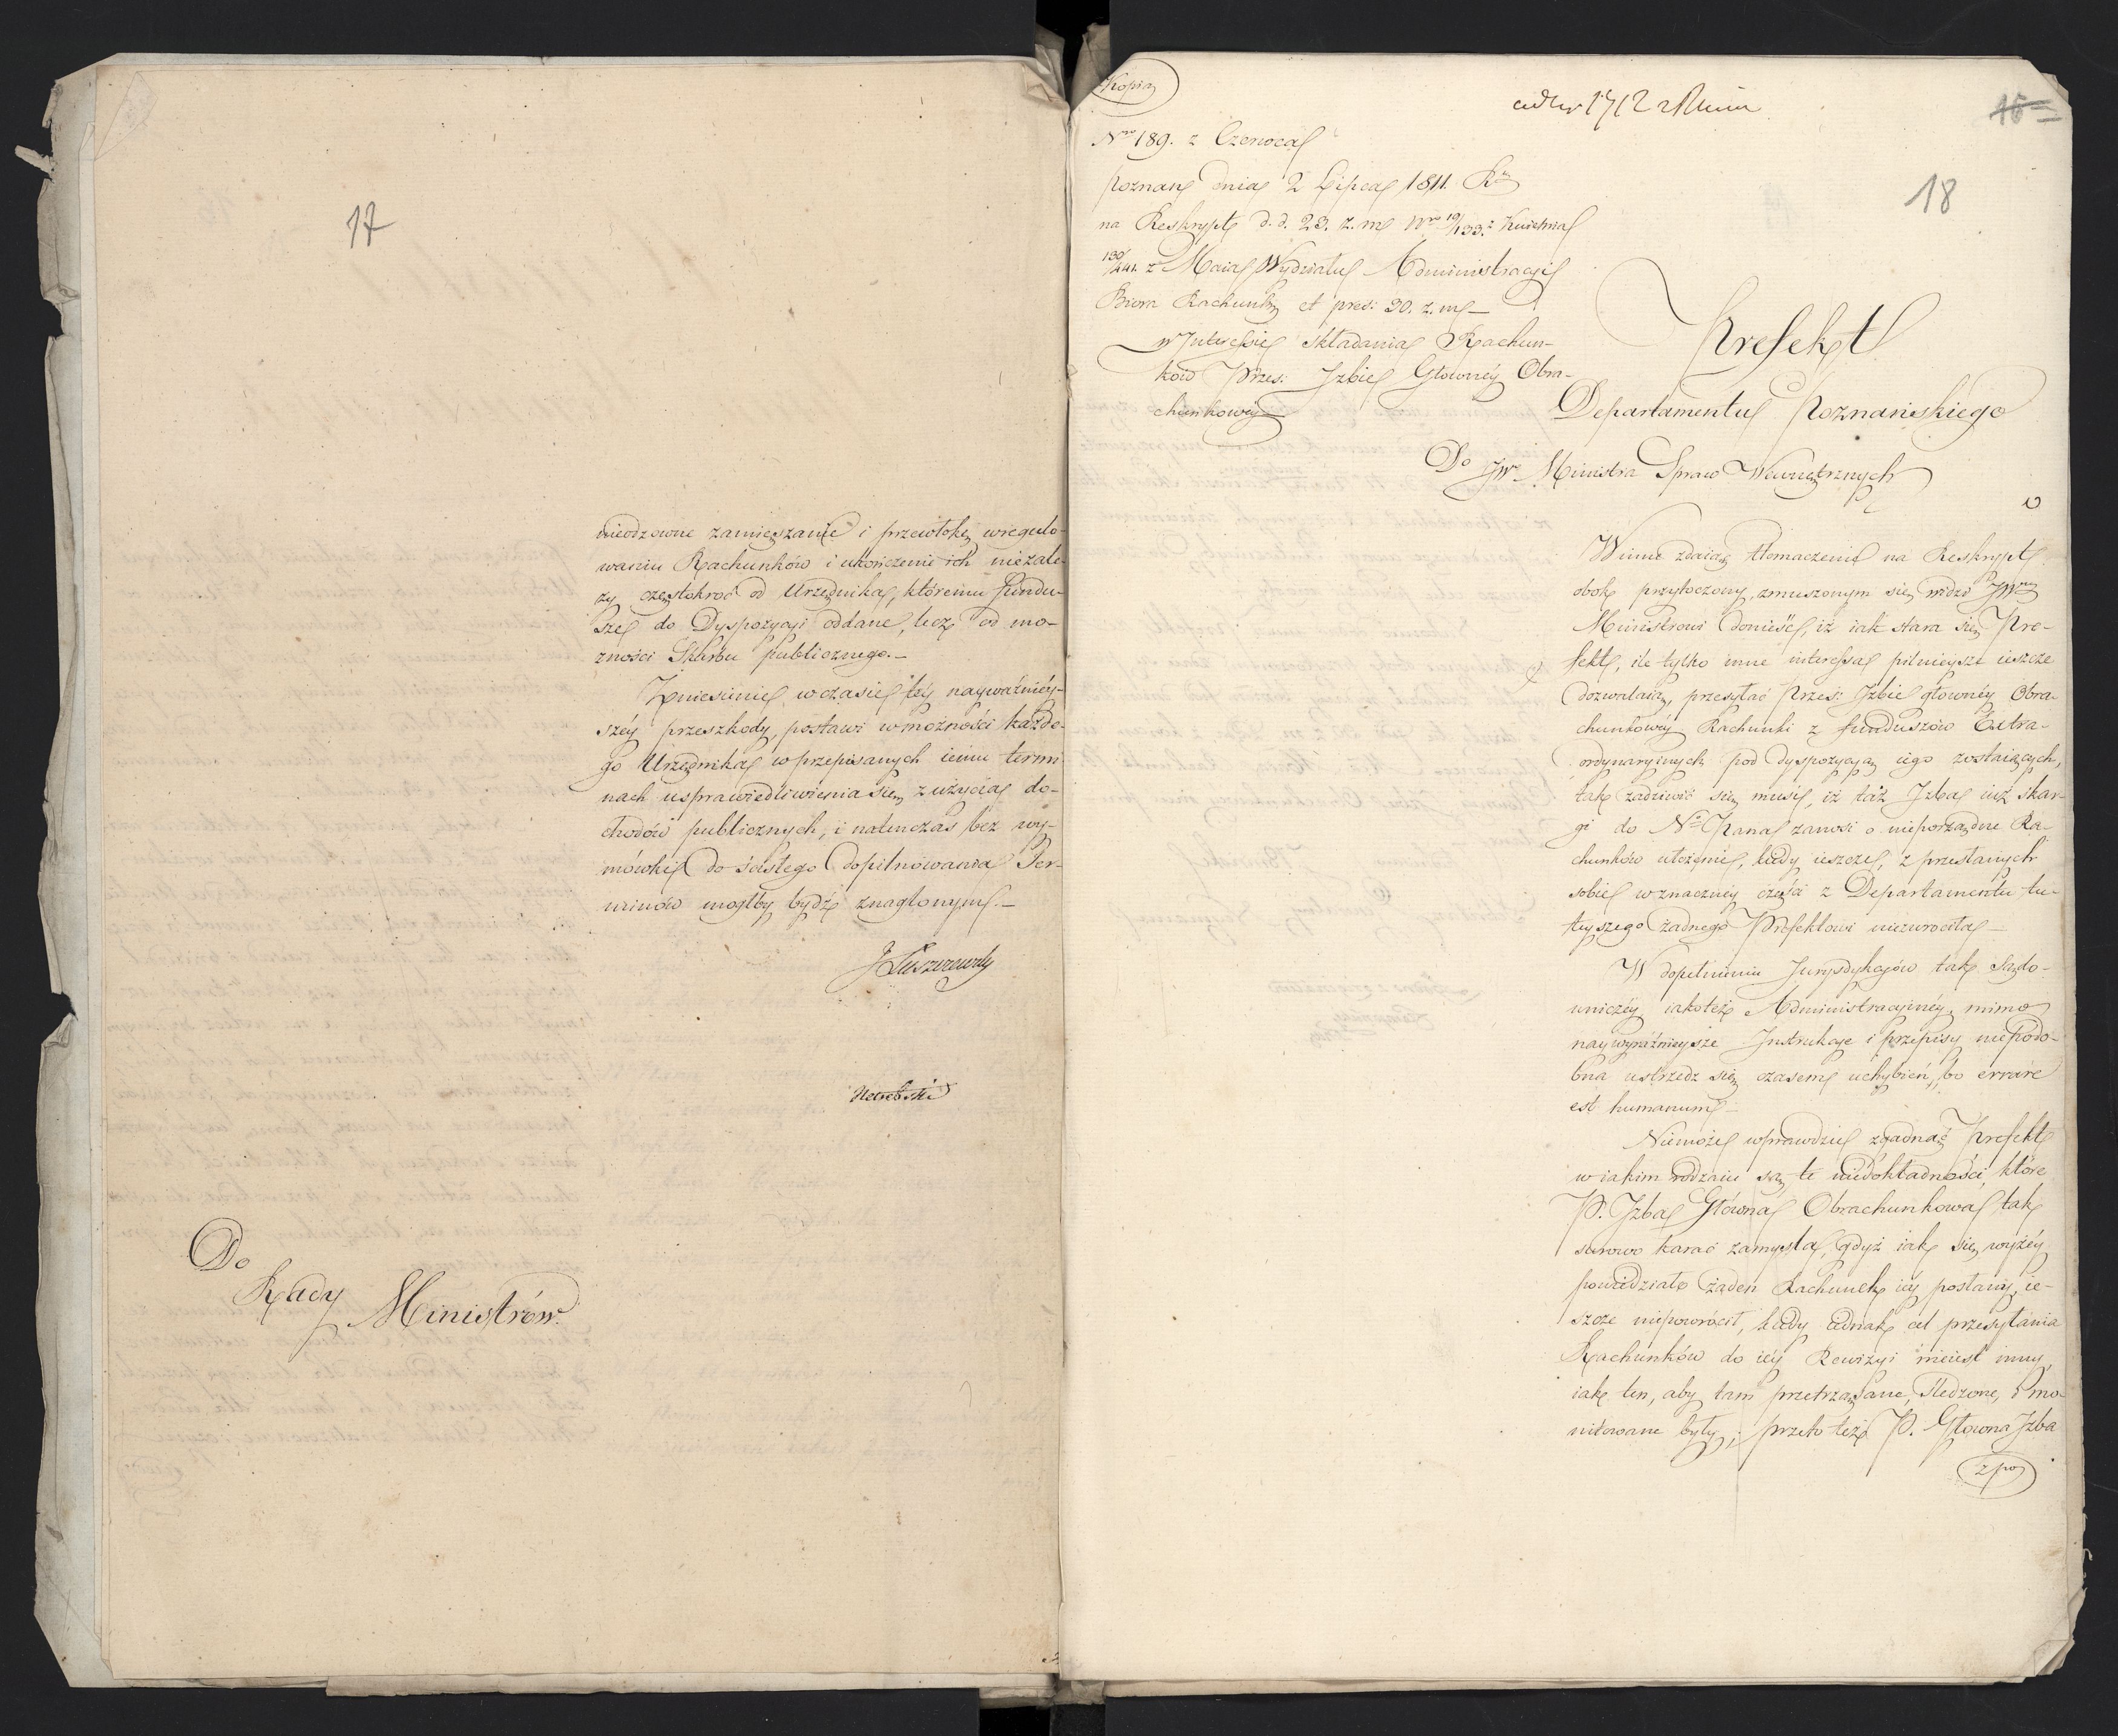 17
nieodzowne zamieszanie i przewłokę w regulo-
waniu Rachunków i ukończenie ich niezale-
ży częstokroć od Urzędnika, któremu fundu-
sze do Dyspozycyi oddane, lecz od mo-
żności Skarbu publicznego.—
Zniesienie w czasie téy nayważniéy-
széy przeszkody, postawi w możności każde-
go Urzędnika w przepisanych iemu termi-
nach usprawiedliwienia się z użycia do-
chodów publicznych, i natenczas bez wy-
mówki do ścisłego dopilnowania Ter-
minów mógłby bydź znaglonym.—
J Łuszczewsky
Do
Rady Ministrów.
Kopia
18
Nro 189. z Czerwca
Poznań dnia 2 Lipca 1811. R
na Reskrypt d. d. 23. z. m. Nro 19/133. z Kwietnia
130/441. z Maia Wydziału Administracyi
Biora Rachunk. et pres: 30. z. m.—
w Interessie składania Rachun-
ków Prześ: Izbie Głównéy Obra-
chunkowéy
Prefekt
Departamentu Poznańskiego
Do JW Ministra Spraw Wewnętrznych
Winne zdaiąc tłomaczenie na Reskrypt
obok przytoczony, zmuszonym się widzi JW
Ministrowi donieść, iż iak stara się Pre-
fekt, ile tylko inne interessa pilnieysze ieszcze
dozwalaią, przesyłać Prześ: Izbie głównéy Obra-
chunkowéy Rachunki z funduszów Extra-
ordynaryinych pod dyspozycyą iego zostaiących,
tak zadziwić się musi, iż taż Izba iuż skar-
gi do Pana zanosi o nieporządne Ra-
chunków ułożenie, kiedy ieszcze, z przesłanych
sobie w znacznéy części z Departamentu tu-
teyszego żadnego Prefektowi niezwróciła—
W dopełnieniu Jurysdykcyów tak Sądo-
wniczéy iakoteż Administracyinéy, mimo
naywyraźnieysze Instrukcye i przepisy niepodo-
bna ustrzedz się czasem uchybień, bo errare
est humanum—
Niemoże wprawdzie zgadnąć Prefekt
w iakim rodzaiu są te niedokładności, które
P. Izba Główna Obrachunkowa tak
surowo karać zamyśla, gdyż iak się wyżéy
powiedziało żaden Rachunek iéy posłany, ie-
szcze niepowrócił, kiedy iednak cel przesyłania
Rachunków do iéy Rewizyi nieiest inny,
iak ten, aby tam przetrząsane, śledzone, i mo-
nitowane były; przeto też P. Główna Izba
z po